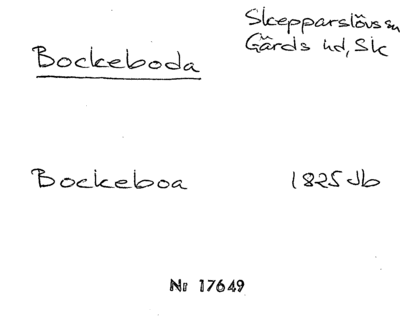 Bockeboda
Skepparslövs sn
Gärds hd, Sk
Bockeboa 1825 Jb
Nr 17649